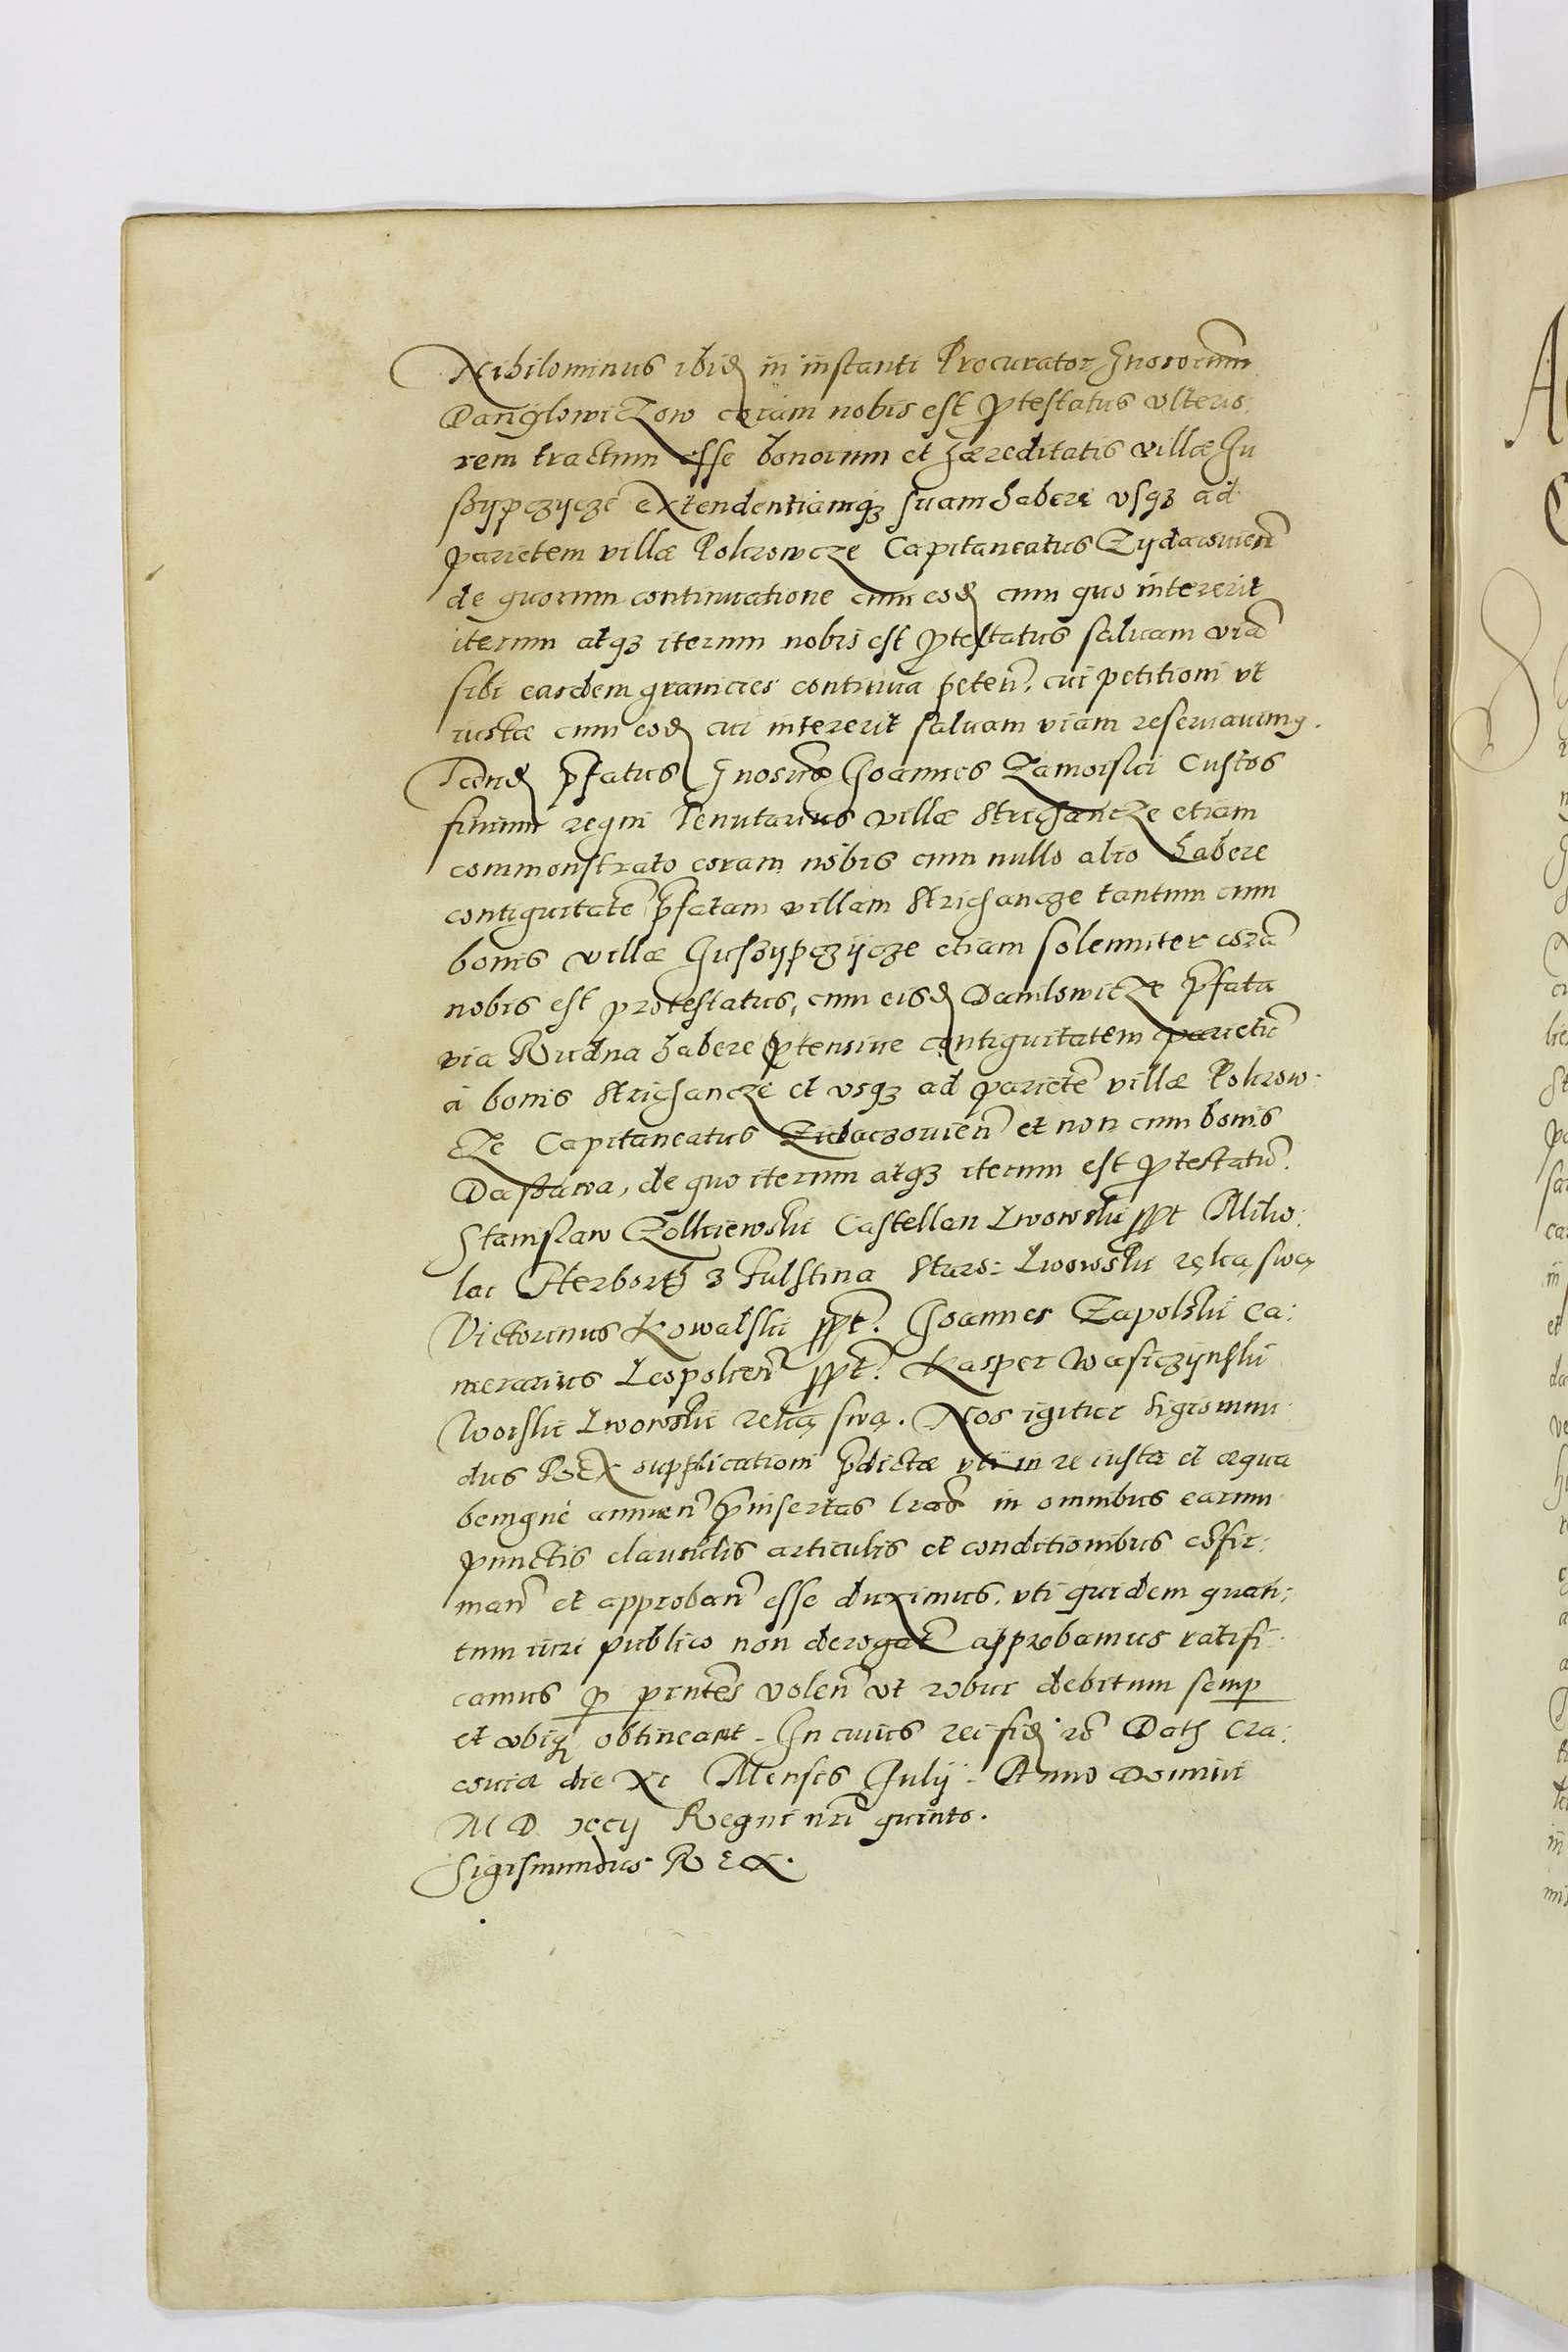 Nihilominus ibid in instanti Procurator Gnosorum
Daniglowiczow coram nobis est ptestatus vlterio:
rem tractum esse bonorum et hæreditatis villæ Ju
szypczycze extendentiamq suam habere vsq ad
parietem villæ Pokrowcze Capitaneatus Zijdacouien
de quorum continuatione cum eod cum quo intererit
iterum atq iterum nobis est ptestatus saluam via
sibi easdem granicies continua peten. cui petitioni vt
iustæ cum eod cui intererit saluam viam reseruauimg.
Tand pfatus Gnosus Joannes Zamoiski Custos
finium regni Tenutarius villæ Strichancze etiam
commonstrato coram nobis cum nullo alio habere
contiguitate pfatam villam Strichancze tantum cum
bonis villæ Juszypczycze etiam solenniter cora
nobis est protestatus, cum eisd Danilowicze pfata
via Rudna habere ptensiue contiguitatem parietu
à bonis Strichancze et vsq ad pariete villæ Pokrow-
cze Capitaneatus Zidaczouien et non cum bonis
Daszawa, de quo iterum atq iterum est ptestatu.
Stanislaw Zolkiewski Castellan Lwowski ppt Miko:
lai Herborth z Fulstina Staro: Lwowski ręką swą
Victorinus Kowalski ppt. Joannes Zapolski Ca:
merarius Leopolien ppt. Kasper Wasiczynski
Woiski Lwowski ręką swą. Nos igitur Sigismun
dus REX supplicationi pdictæ vti in re iusta et æqua
benignè annuen pinsertas lras in omnibus earum
punctis clausulis articulis et conditionibus cofir:
man et approban esse duximus. vti quidem quan:
tum iuri publico non derogat approbamus ratifi
camus p pntes volen vt robur debitum semp
et vbiq obtineant. In cuius rei fid &c Dat Cra:
couiæ die XI Mensis Julij. Anno Domini
M D xcij Regni nri quinto.
Sigismundus REX.